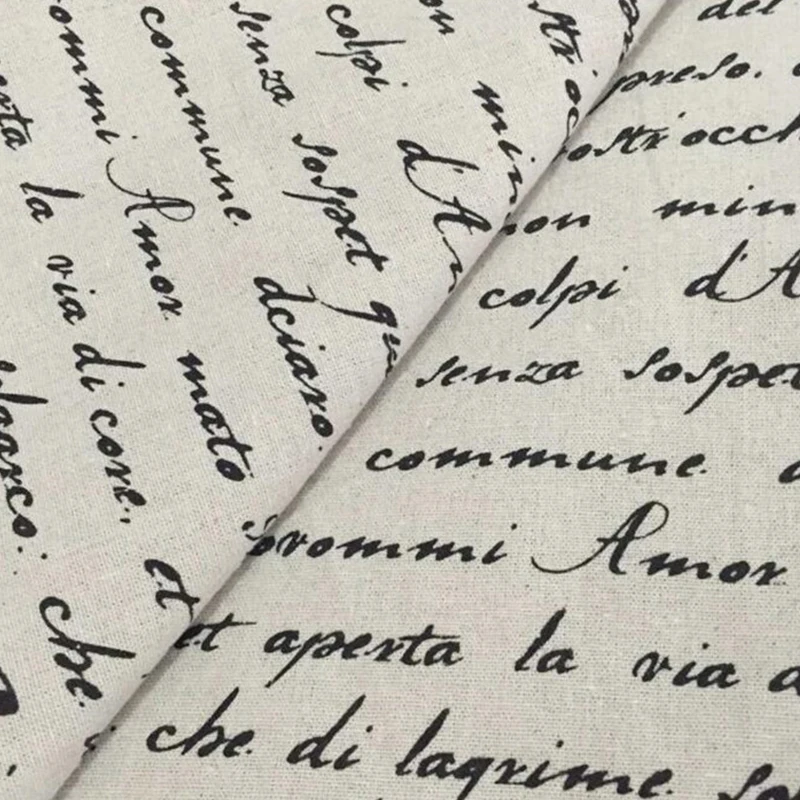 del
preso.
vostr'occh
non min
colpi d'A
senza sospet
commune.
Trovommi Amor
et aperta la via d
che di lagrime so
ommi Amor mato
commune. dciaro.
senza sospet qu
colpi d'A
on min
erta la via di core, et
sbarco: che